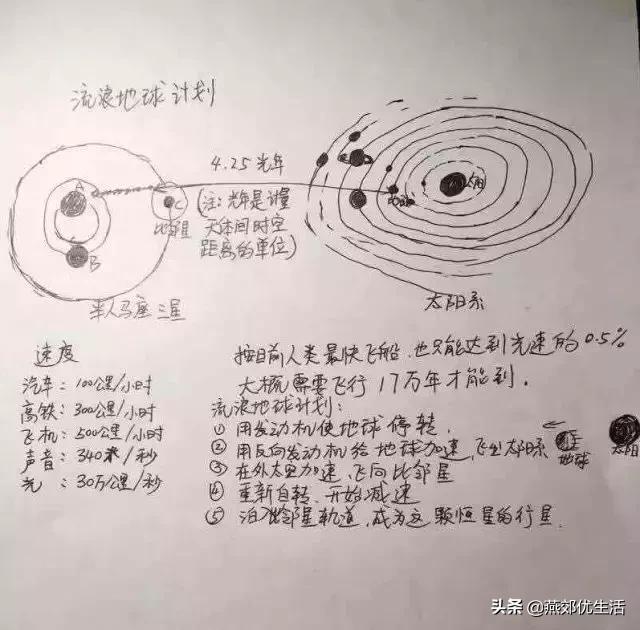 流浪地球计划
4.25光年
(注:光年是计量
天体间时空
距离的单位)
A
B
C
比邻星
半人马座三星
太阳
地球
太阳系
速度
汽车:100公里/小时
高铁:300公里/小时
飞机:500公里/小时
声音:340米/秒
光:30万公里/秒
按目前人类最快飞船,也只能达到光速的0.5%
大概需要飞行17万年才能到.
流浪地球计划:
① 用发动机使地球停转.
② 用反向发动机给地球加速,飞出太阳系
③ 在外太空加速,飞向比邻星
④ 重新自转,开始减速
⑤ 泊入比邻星轨道,成为这颗恒星的行星.
地球
太阳
头条 @燕郊优生活